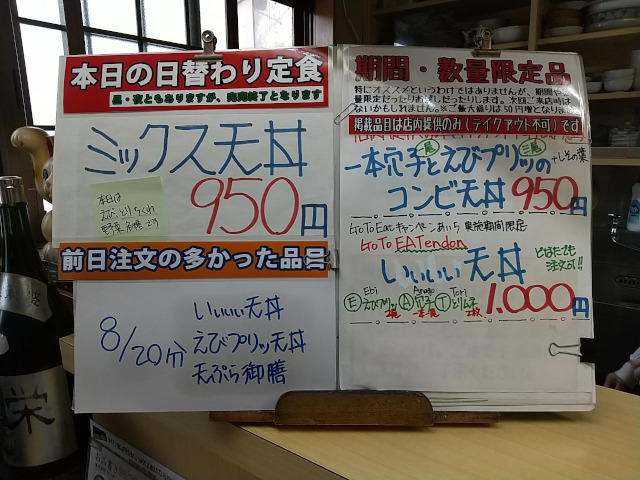 本日の日替わり定食
昼・夜ともありますが、完売終了となります
ミックス天丼
本日は
950円
前日注文の多かった品
8/20分
いいいい天丼
えびプリッ天丼
天ぷら御膳
期間・数量限定品
特にオススメというわけではありませんが、期間や数
量限定だったりお試しだったりします。次回ご来店時は
ないかもしれません。※ご飯大盛りは50円増となります
掲載品目は店内提供のみ(テイクアウト不可)です
一本穴子と二尾えびプリッの+しその葉
コンビ天丼 950円
GoTo Eatキャンペーンあいち 実施期間限定
GoTo EATendon
いいいい天丼
どなたでも
注文可!!
Ebi Anago Tori
Ⓔえびプリッ Ⓐ穴子 Ⓣとりムネ
2尾 一本 2枚
1.000円
栄